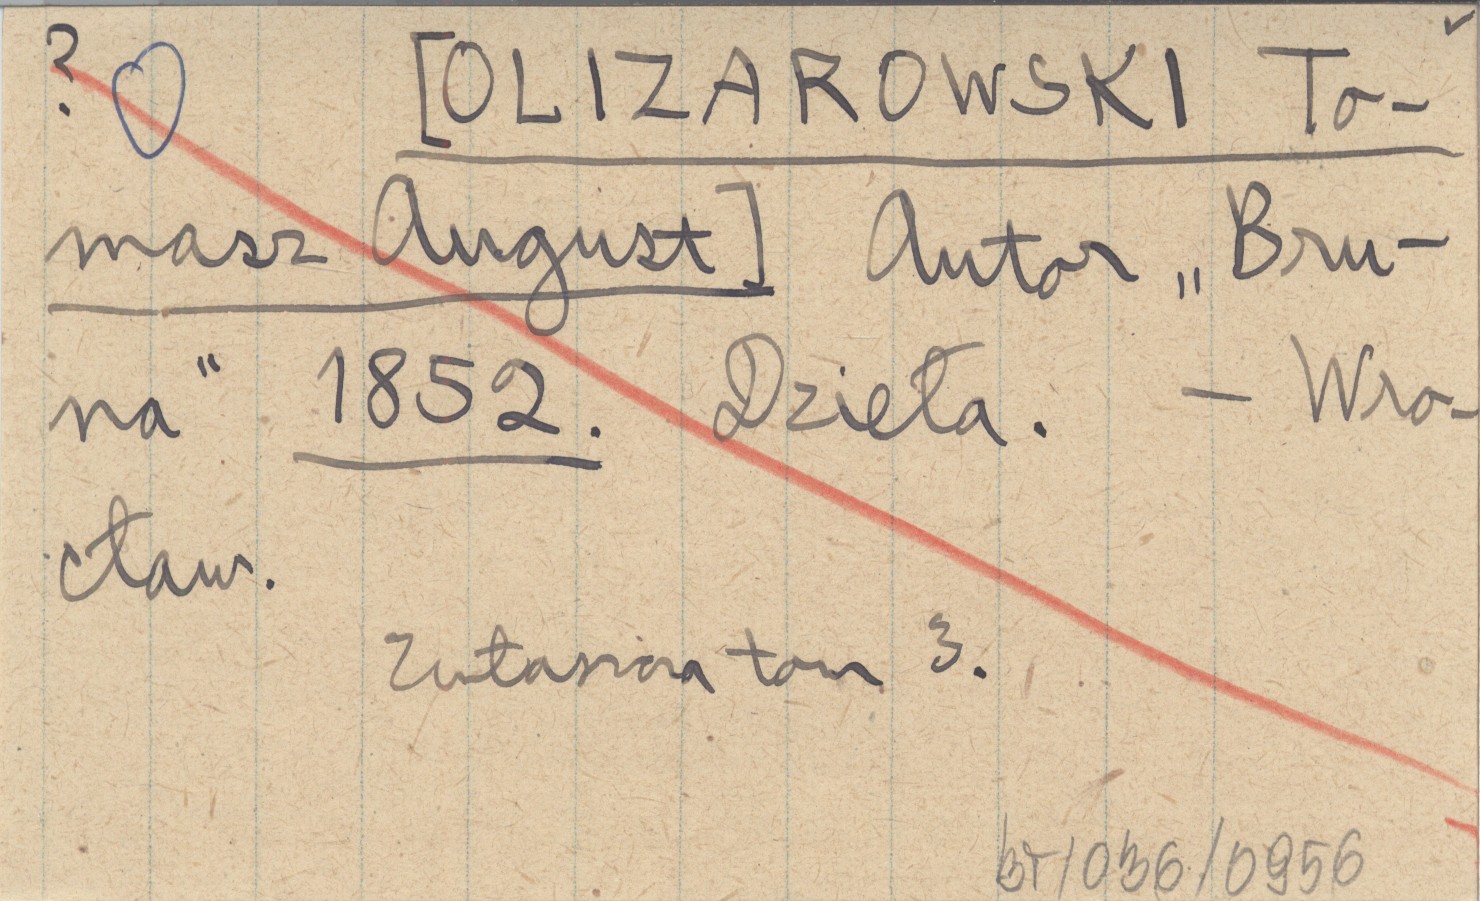 ? [OLIZAROWSKI To-
masz August] Autor „Bru-
na“ 1852. Dzieła. - Wro-
cław.
tom 3.
br/036/0956